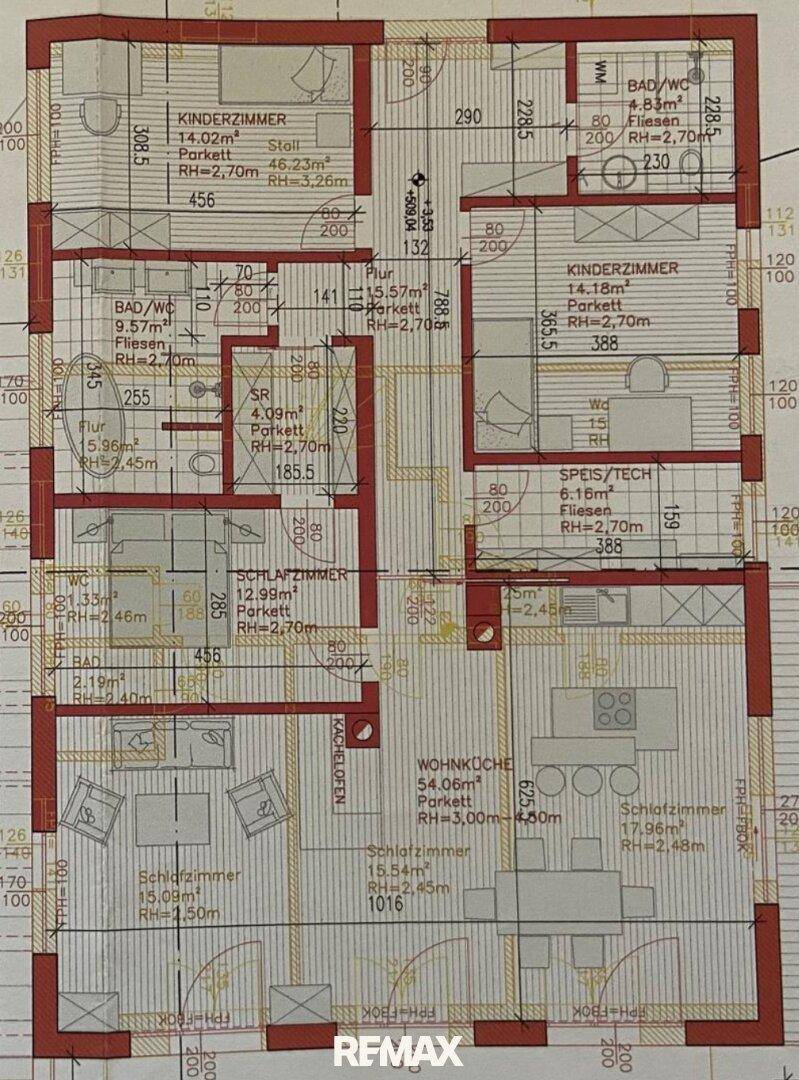 KINDERZIMMER
14.02m²
Parkett
RH=2,70m
Stall
46.23m²
RH=3,26m
308.5
456
FPH=100
80
200
90
200
290
228.5
WM
BAD/WC
4.83m²
Fliesen
RH=2,70m
228.5
80
200
230
+3,53
+509,04
132
80
200
112
131
120
100
KINDERZIMMER
14.18m²
Parkett
RH=2,70m
365.5
388
FPH=100
Flur
15.57m²
Parkett
RH=2,70m
788.5
70
80
200
110
141
110
BAD/WC
9.57m²
Fliesen
RH=2,70m
345
255
126
131
170
100
Flur
15.96m²
RH=2,45m
SR
4.09m²
Parkett
RH=2,70m
80
200
220
185.5
120
100
FPH=100
SPEIS/TECH
6.16m²
Fliesen
RH=2,70m
80
200
159
388
120
100
FPH=100
SCHLAFZIMMER
12.99m²
Parkett
RH=2,70m
80
200
285
456
80
200
WC
1.33m²
RH=2,46m
60
188
BAD
2.19m²
RH=2,40m
126
200
100
KACHELOFEN
WOHNKÜCHE
54.06m²
Parkett
RH=3,00m-4,50m
625.5
Schlafzimmer
17.96m²
RH=2,48m
FPH=FBOK
Schlafzimmer
15.09m²
RH=2,50m
Schlafzimmer
15.54m²
RH=2,45m
1016
170
100
FPH=FBOK
FPH=FBOK
FPH=FBOK
200
200
200
RE/MAX